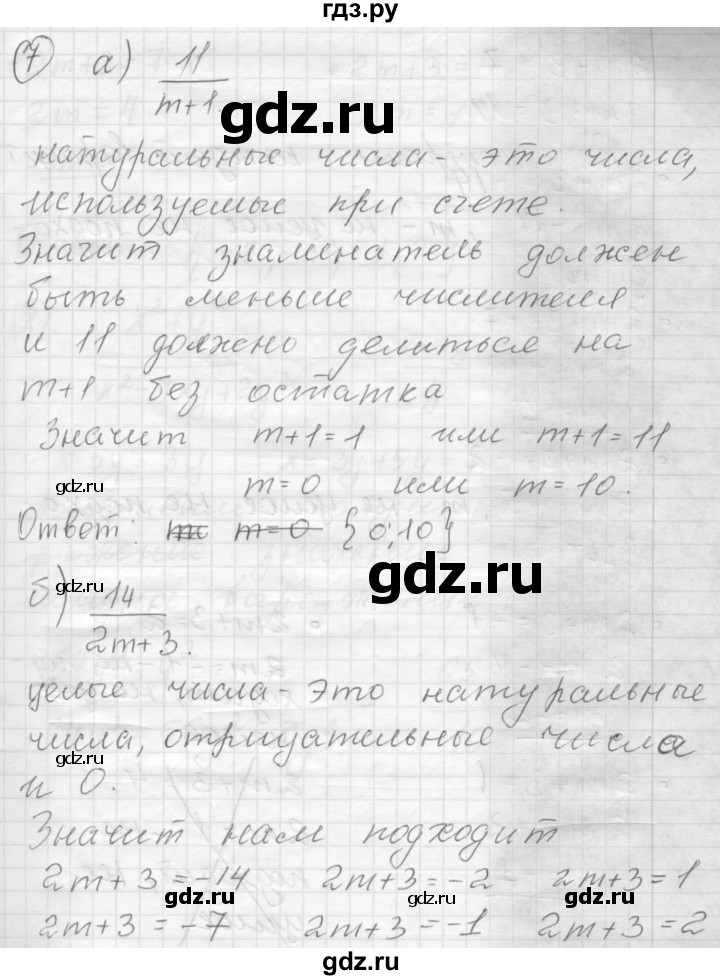 гдз.ру
7 а) 11
m+1
gdz.ru
натуральные числа - это числа,
используемые при счете.
Значит знаменатель должен
быть меньше числителя
и 11 должно делиться на
m+1 без остатка
Значит m+1=1 или m+1=11
gdz.ru
m=0 или m=10.
Ответ: m m=0 {0;10}
gdz.ru
gdz.ru
б) 14
2m+3.
целые числа - это натуральные
числа, отрицательные числа
gdz.ru
и 0.
Значит нам подходит
2m+3=-14 2m+3=-2 2m+3=1
gdz.ru gdz.ru
2m+3=-7 2m+3=-1 2m+3=2
gdz.ru